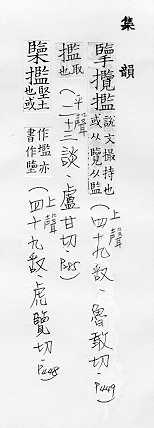 集韻
擥攬㩜說文撮持也或从覽从監(上聲四十九敢、魯敢切.P449)
㩜取也(平聲二十三談、盧甘切.P285)
㩜堅土也或作壏亦書作㙋(上聲四十九敢、虎覽切.P448)